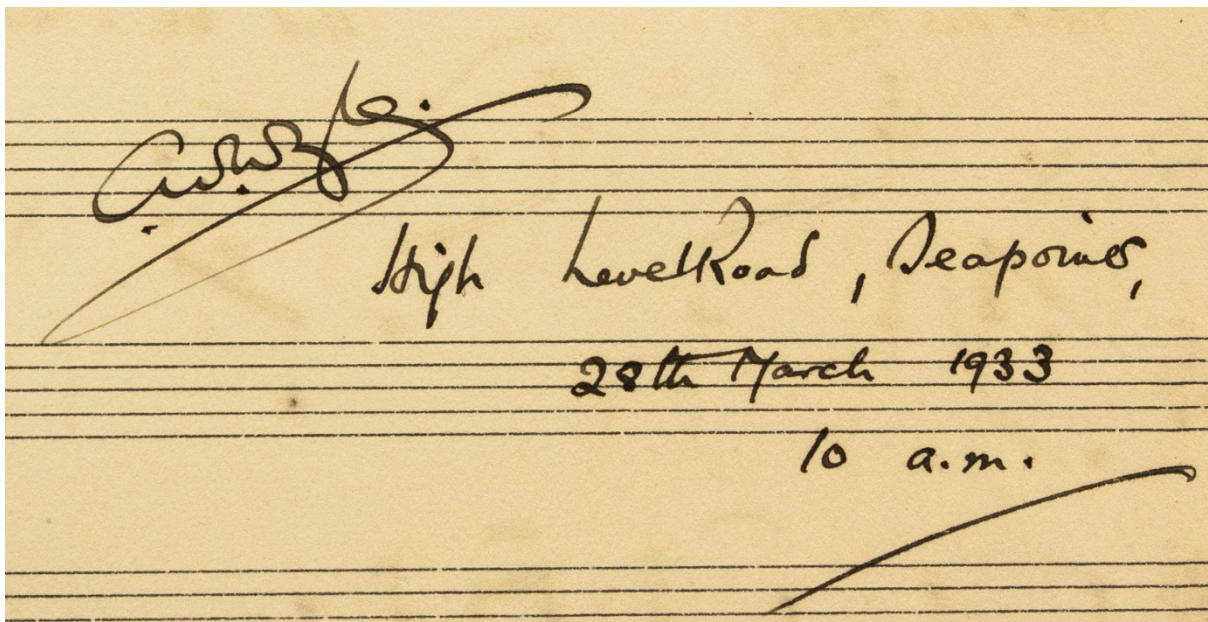 High Level Road, Seapoint,
28th March 1933
10 a.m.